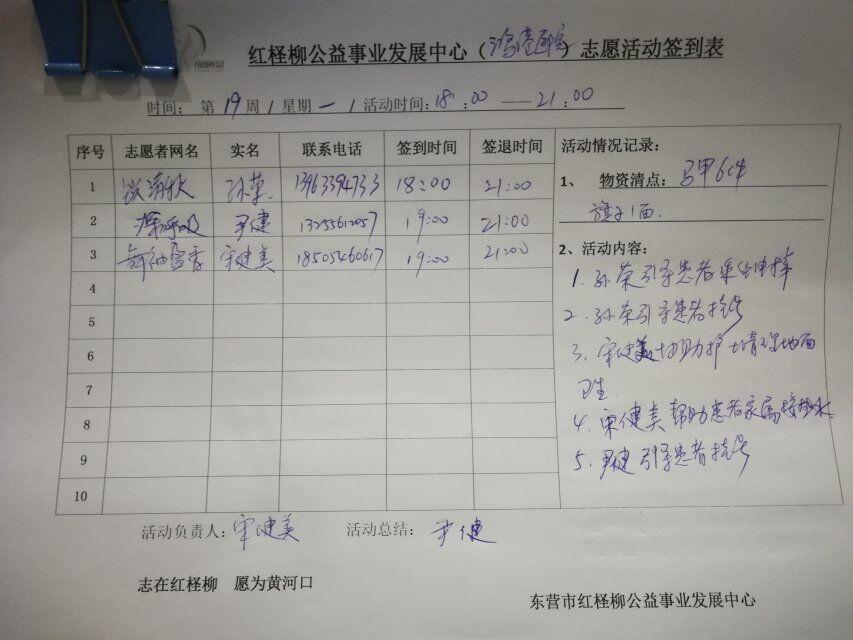 红柽柳公益事业发展中心（鸿港医院）志愿活动签到表
时间：第19周/星期一/活动时间：18：00——21：00
序号 志愿者网名 实名 联系电话 签到时间 签退时间
1 孙荣 13963394733 18:00 21:00
2 深呼吸 尹健 13255612057 19:00 21:00
3 舞袖盈香 宋健美 18505460617 19:00 21:00
4
5
6
7
8
9
10
活动情况记录：
1、 物资清点：马甲6件
旗子1面.
2、活动内容：
1. 孙荣引导患者乘坐电梯
2. 孙荣引导患者挂号
3. 宋健美协助护士清理地面
卫生.
4. 宋健美帮助患者家属接热水
5. 尹健引导患者挂号
活动负责人：宋健美 活动总结：尹健
志在红柽柳 愿为黄河口
东营市红柽柳公益事业发展中心